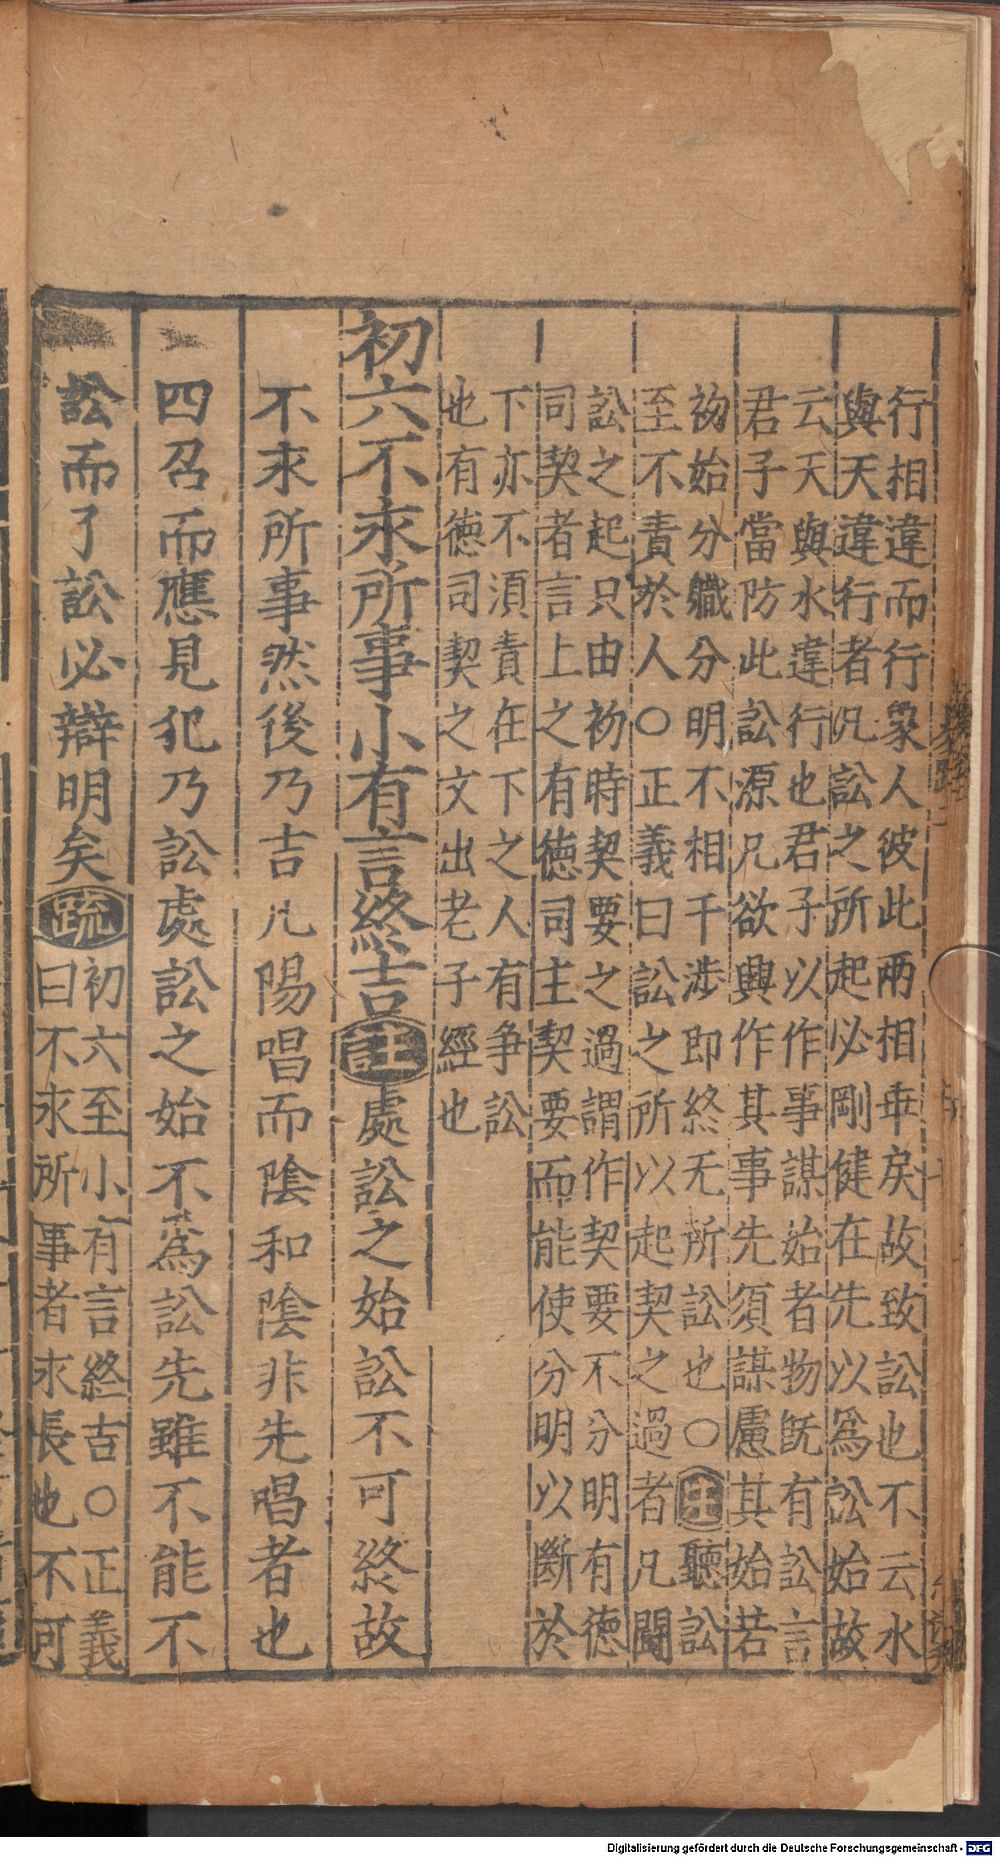 行相違而行象人彼此兩相乖戾故致訟也不云水
與天違行者凡訟之所起必剛健在先以爲訟始故
云天與水違行也君子以作事謀始者物旣有訟言
君子當防此訟源凡欲興作其事先須謀慮其始若
初始分職分明不相干涉即終无所訟也○注聽訟
至不責於人○正義曰訟之所以起契之過者凡鬪
訟之起只由初時契要之過謂作契要不分明有德
司契者言上之有德司主契要而能使分明以斷於
下亦不須責在下之人有争訟
也有德司契之文出老子經也
初六不求所事小有言終吉注處訟之始訟不可終故
不求所事然後乃吉凡陽唱而陰和陰非先唱者也
四召而應見犯乃訟處訟之始不爲訟先雖不能不
訟而了訟必辯明矣疏
初六至小有言終吉○正義
曰不求所事者求長也不可
Digitalisierung gefördert durch die Deutsche Forschungsgemeinschaft - DFG